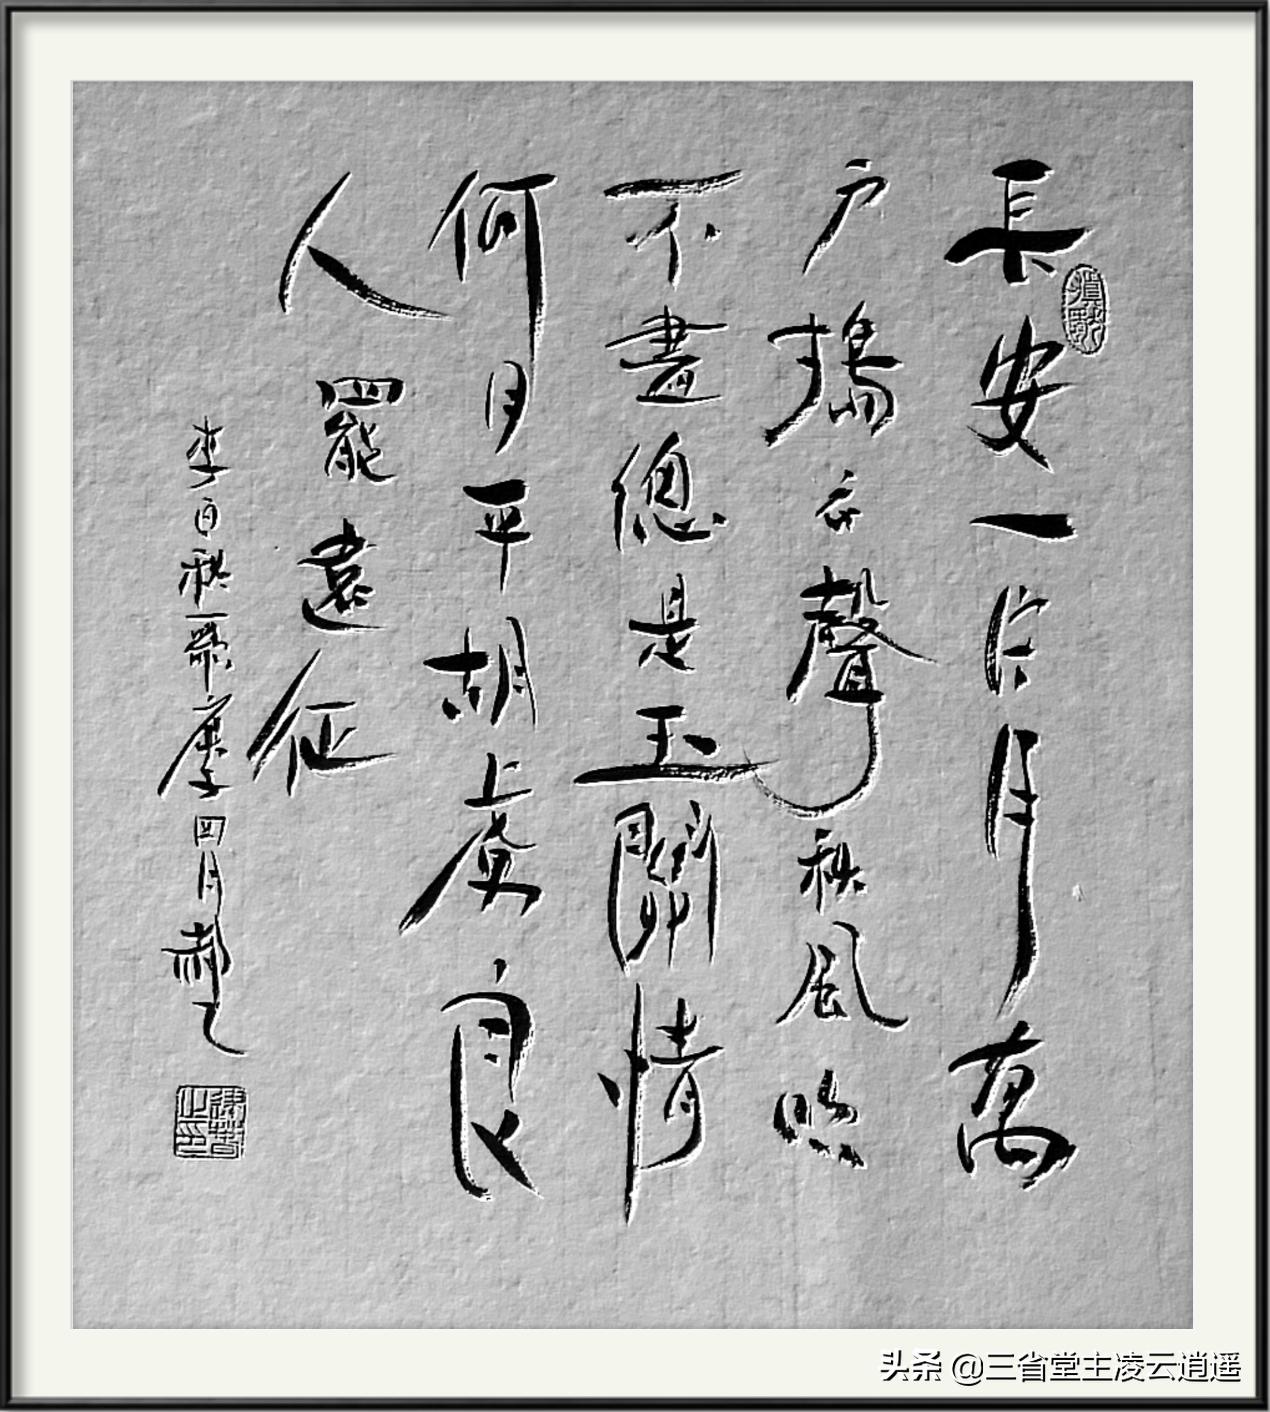 長安一片月萬
户擣衣聲秋風吹
不盡總是玉關情
何日平胡虜良
人罷遠征
李白秋 庚子四月
头条 @三省堂主凌云逍遥